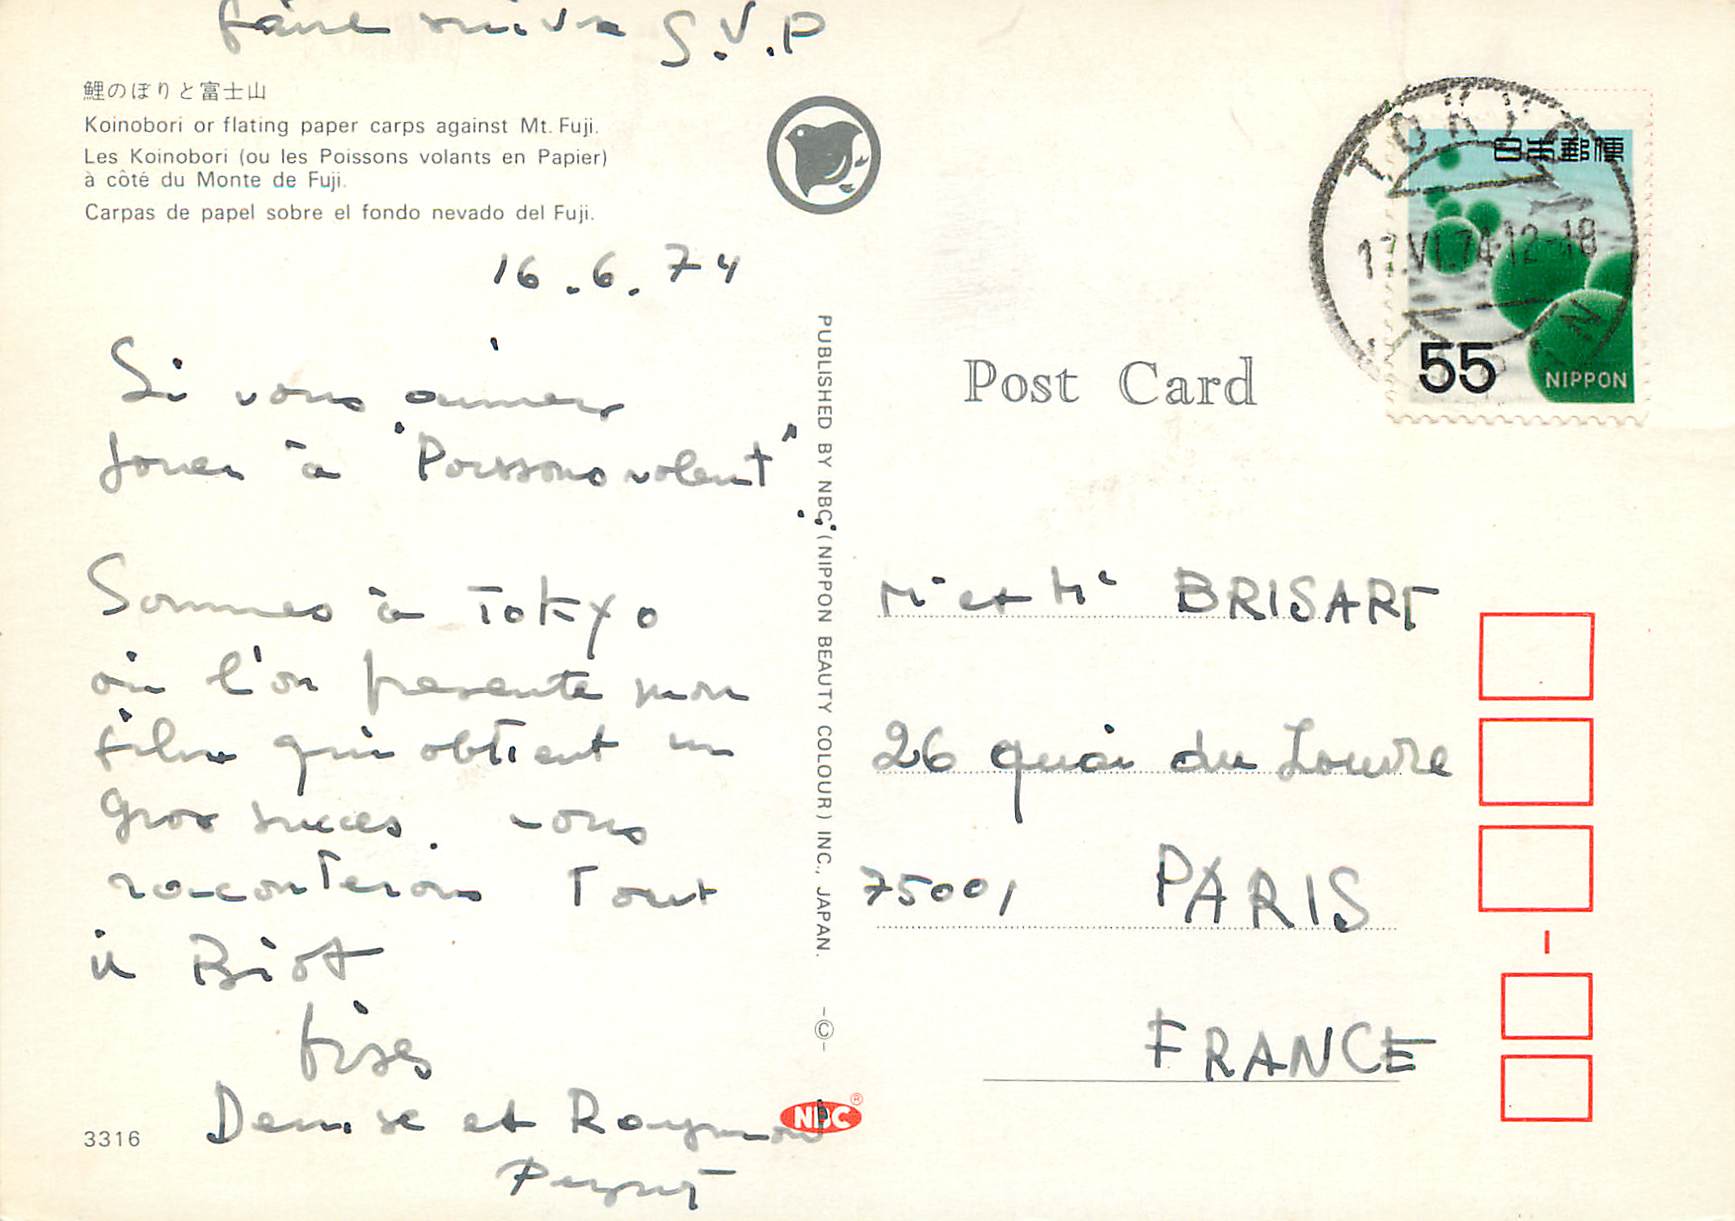 faire suivre S.V.P
鯉のぼりと富士山
Koinobori or flating paper carps against Mt. Fuji.
Les Koinobori (ou les Poissons volants en Papier)
à côté du Monte de Fuji.
Carpas de papel sobre el fondo nevado del Fuji.
16.6.74
Si vous aimez
jouer à "Poissons volant"
...
Sommes à Tokyo
où l'on presente mon
film qui obtient un
gros succes. vous
raconterons Tout
à Biot
Bises
Denise et Raymond
Peynet
3316
PUBLISHED BY NBC (NIPPON BEAUTY COLOUR) INC., JAPAN.
©
NBC ®
Post Card
TOKYO
17.VI.74.12-18
日本郵便
55
NIPPON
Mr et Me BRISART
26 quai du Louvre
75001 PARIS
FRANCE